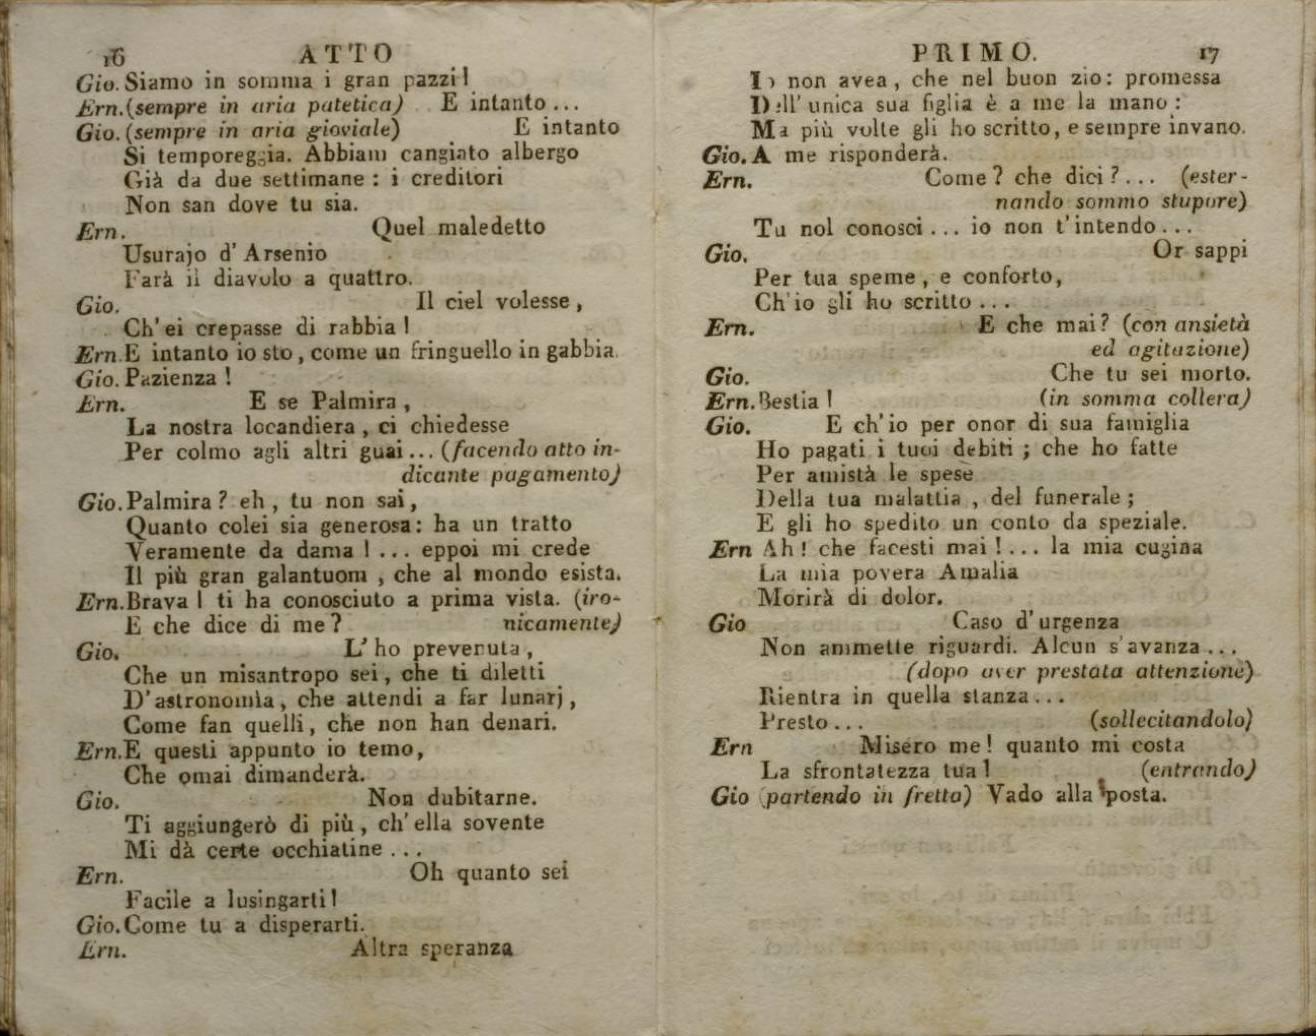 16 ATTO
Gio. Siamo in somma i gran pazzi!
Ern. (sempre in aria patetica) E intanto ...
Gio. (sempre in aria gioviale) E intanto
Si temporeggia. Abbiam cangiato albergo
Già da due settimane: i creditori
Non san dove tu sia.
Ern. Quel maledetto
Usurajo d'Arsenio
Farà il diavolo a quattro.
Gio. Il ciel volesse,
Ch'ei crepasse di rabbia!
Ern. E intanto io sto, come un fringuello in gabbia.
Gio. Pazienza!
Ern. E se Palmira,
La nostra locandiera, ci chiedesse
Per colmo agli altri guai... (facendo atto in-
dicante pagamento)
Gio. Palmira? eh, tu non sai,
Quanto colei sia generosa: ha un tratto
Veramente da dama!... eppoi mi crede
Il più gran galantuom, che al mondo esista.
Ern. Brava! ti ha conosciuto a prima vista. (iro-
E che dice di me? nicamente)
Gio. L'ho prevenuta,
Che un misantropo sei, che ti diletti
D'astronomia, che attendi a far lunarj,
Come fan quelli, che non han denari.
Ern. E questi appunto io temo,
Che omai dimanderà.
Gio. Non dubitarne.
Ti aggiungerò di più, ch'ella sovente
Mi dà certe occhiatine ...
Ern. Oh quanto sei
Facile a lusingarti!
Gio. Come tu a disperarti.
Ern. Altra speranza
PRIMO. 17
Io non avea, che nel buon zio: promessa
Dell'unica sua figlia è a me la mano:
Ma più volte gli ho scritto, e sempre invano.
Gio. A me risponderà.
Ern. Come? che dici?... (ester-
nando sommo stupore)
Tu nol conosci... io non t'intendo...
Gio. Or sappi
Per tua speme, e conforto,
Ch'io gli ho scritto ...
Ern. E che mai? (con ansietà
ed agitazione)
Gio. Che tu sei morto.
Ern. Bestia! (in somma collera)
Gio. E ch'io per onor di sua famiglia
Ho pagati i tuoi debiti; che ho fatte
Per amistà le spese
Della tua malattia, del funerale;
E gli ho spedito un conto da speziale.
Ern Ah! che facesti mai!... la mia cugina
La mia povera Amalia
Morirà di dolor.
Gio Caso d'urgenza
Non ammette riguardi. Alcun s'avanza...
(dopo aver prestata attenzione)
Rientra in quella stanza...
Presto... (sollecitandolo)
Ern Misero me! quanto mi costa
La sfrontatezza tua! (entrando)
Gio (partendo in fretta) Vado alla posta.